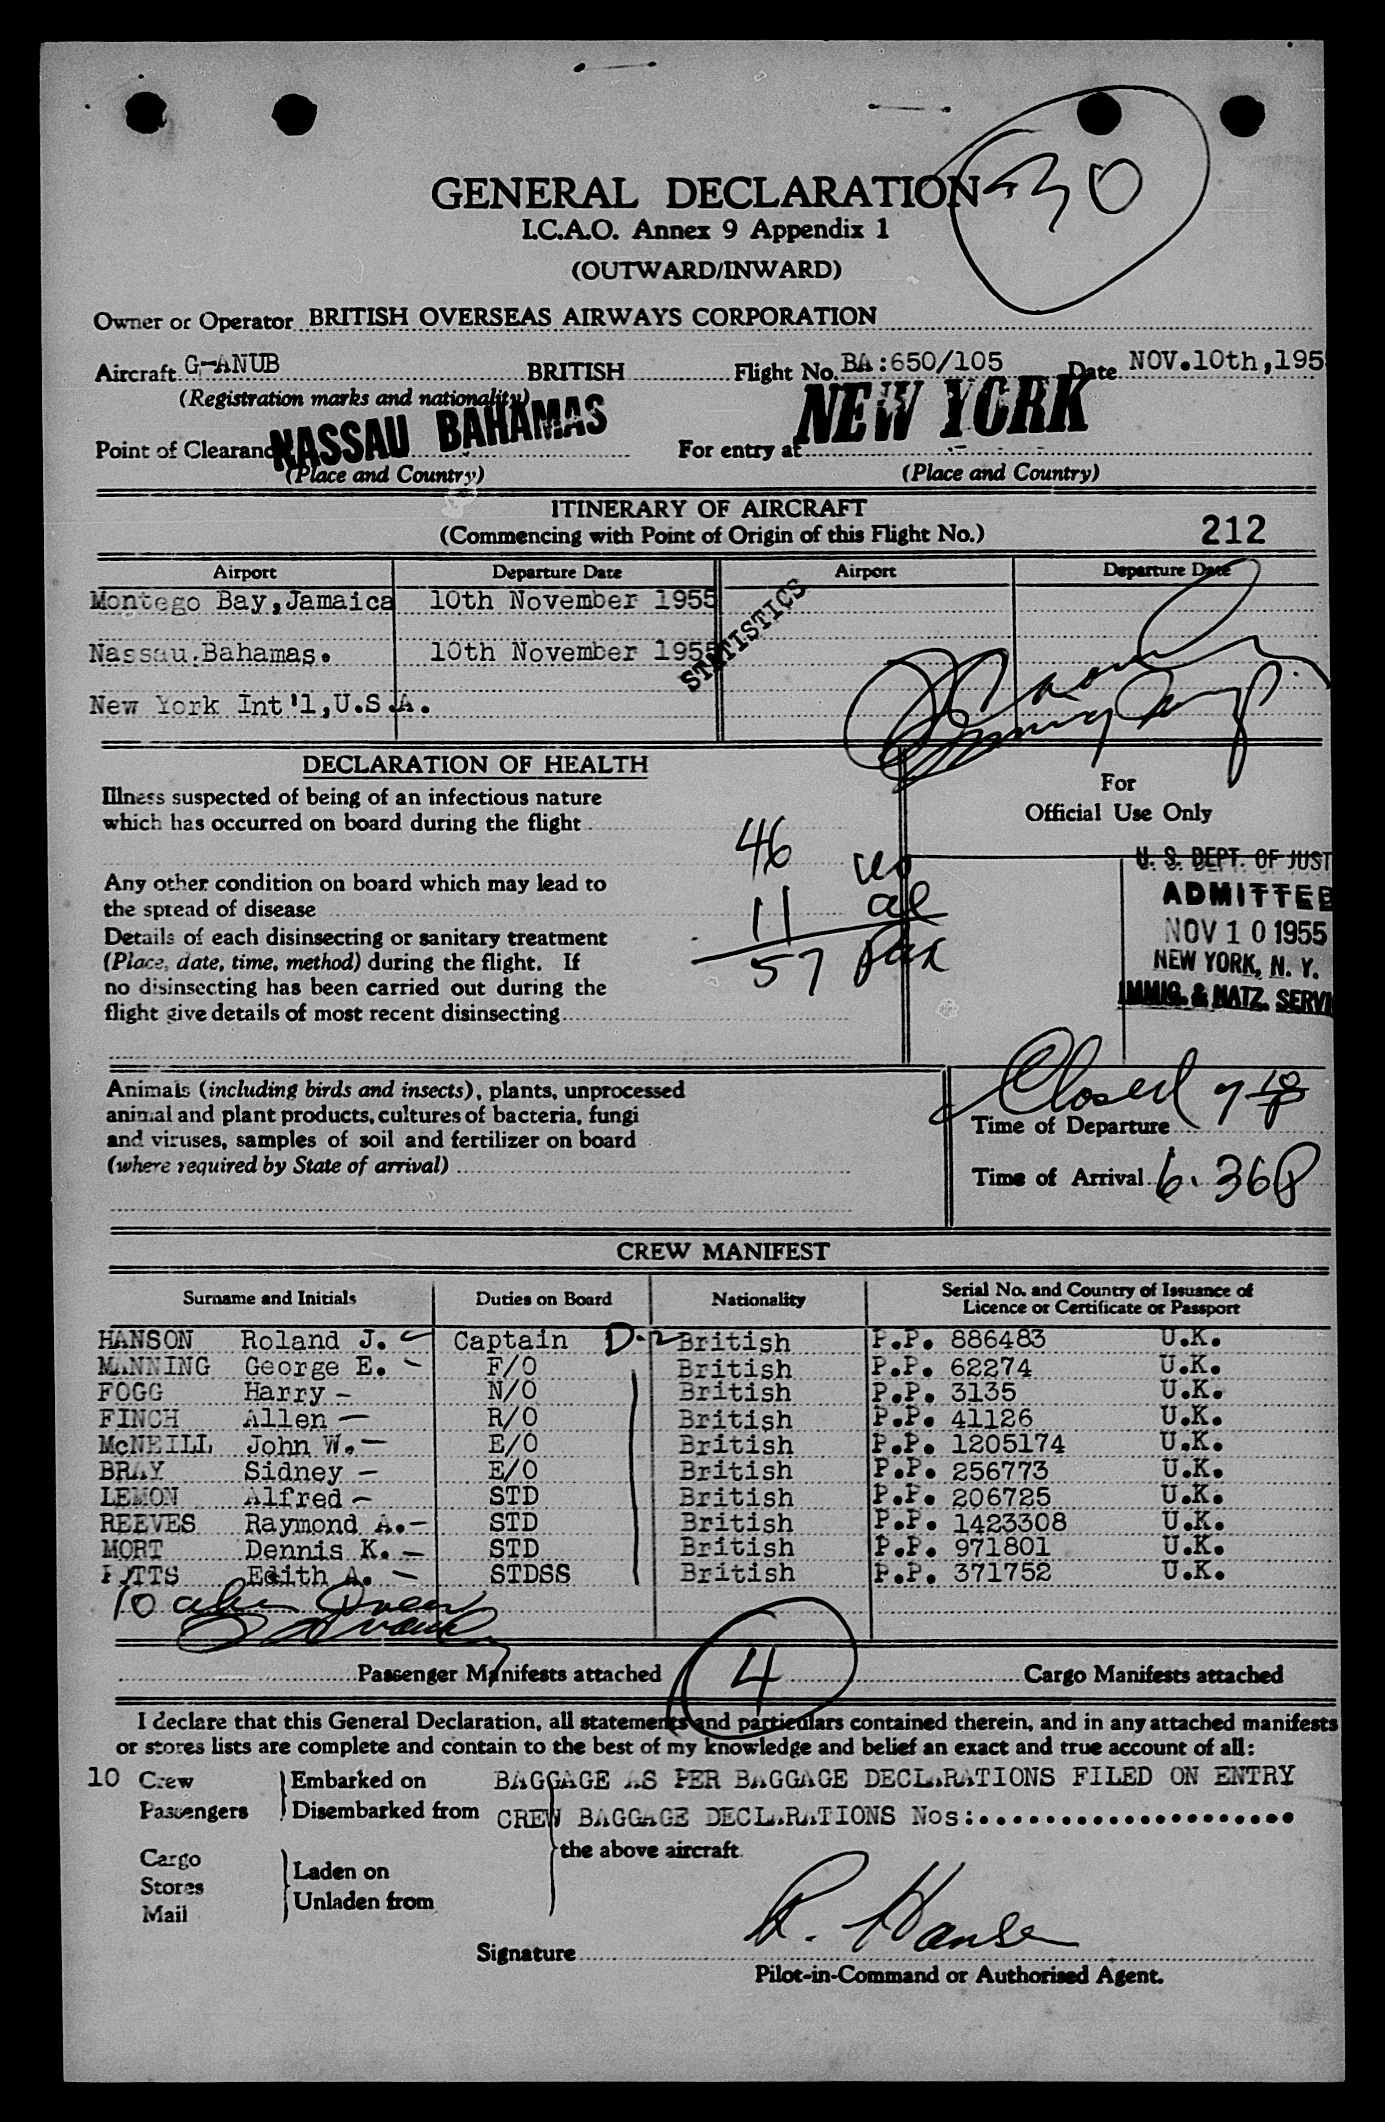 30
GENERAL DECLARATION
I.C.A.O. Annex 9 Appendix 1
(OUTWARD/INWARD)
Owner or Operator BRITISH OVERSEAS AIRWAYS CORPORATION
Aircraft G-ANUB BRITISH Flight No. BA:650/105 Date NOV.10th,195
(Registration marks and nationality)
Point of Clearanc NASSAU BAHAMAS For entry at NEW YORK
(Place and Country) (Place and Country)
ITINERARY OF AIRCRAFT
(Commencing with Point of Origin of this Flight No.) 212
Airport Departure Date Airport Departure Date
Montego Bay,Jamaica 10th November 1955
STATISTICS
Nassau.Bahamas. 10th November 1955
New York Int'l,U.S.A.
DECLARATION OF HEALTH
For
Official Use Only
Illness suspected of being of an infectious nature
which has occurred on board during the flight
46
Any other condition on board which may lead to
the spread of disease
11 al
Details of each disinsecting or sanitary treatment
(Place, date, time, method) during the flight. If
57 Pax
no disinsecting has been carried out during the
flight give details of most recent disinsecting
U. S. DEPT. OF JUST
ADMITTED
NOV 10 1955
NEW YORK, N. Y.
IMMIG. & NATZ. SERVI
Animals (including birds and insects), plants, unprocessed
animal and plant products, cultures of bacteria, fungi
and viruses, samples of soil and fertilizer on board
(where required by State of arrival)
Closed 7
Time of Departure
Time of Arrival 6.36P
CREW MANIFEST
Surname and Initials Duties on Board Nationality Serial No. and Country of Issuance of
Licence or Certificate or Passport
HANSON Roland J. Captain D-2 British P.P. 886483 U.K.
MANNING George E. F/O British P.P. 62274 U.K.
FOGG Harry - N/O British P.P. 3135 U.K.
FINCH Allen - R/O British P.P. 41126 U.K.
McNEILL John W. - E/O British P.P. 1205174 U.K.
BRAY Sidney - E/O British P.P. 256773 U.K.
LEMON Alfred - STD British P.P. 206725 U.K.
REEVES Raymond A. - STD British P.P. 1423308 U.K.
MORT Dennis K. - STD British P.P. 971801 U.K.
POTTS Edith A. - STDSS British P.P. 371752 U.K.
10 alien
Passenger Manifests attached 4 Cargo Manifests attached
I declare that this General Declaration, all statements and particulars contained therein, and in any attached manifests
or stores lists are complete and contain to the best of my knowledge and belief an exact and true account of all:
10 Crew Embarked on BAGGAGE AS PER BAGGAGE DECLARATIONS FILED ON ENTRY
Passengers Disembarked from CREW BAGGAGE DECLARATIONS Nos:....................
the above aircraft
Cargo
Stores
Mail
Laden on
Unladen from
Signature R. Hanson
Pilot-in-Command or Authorised Agent.